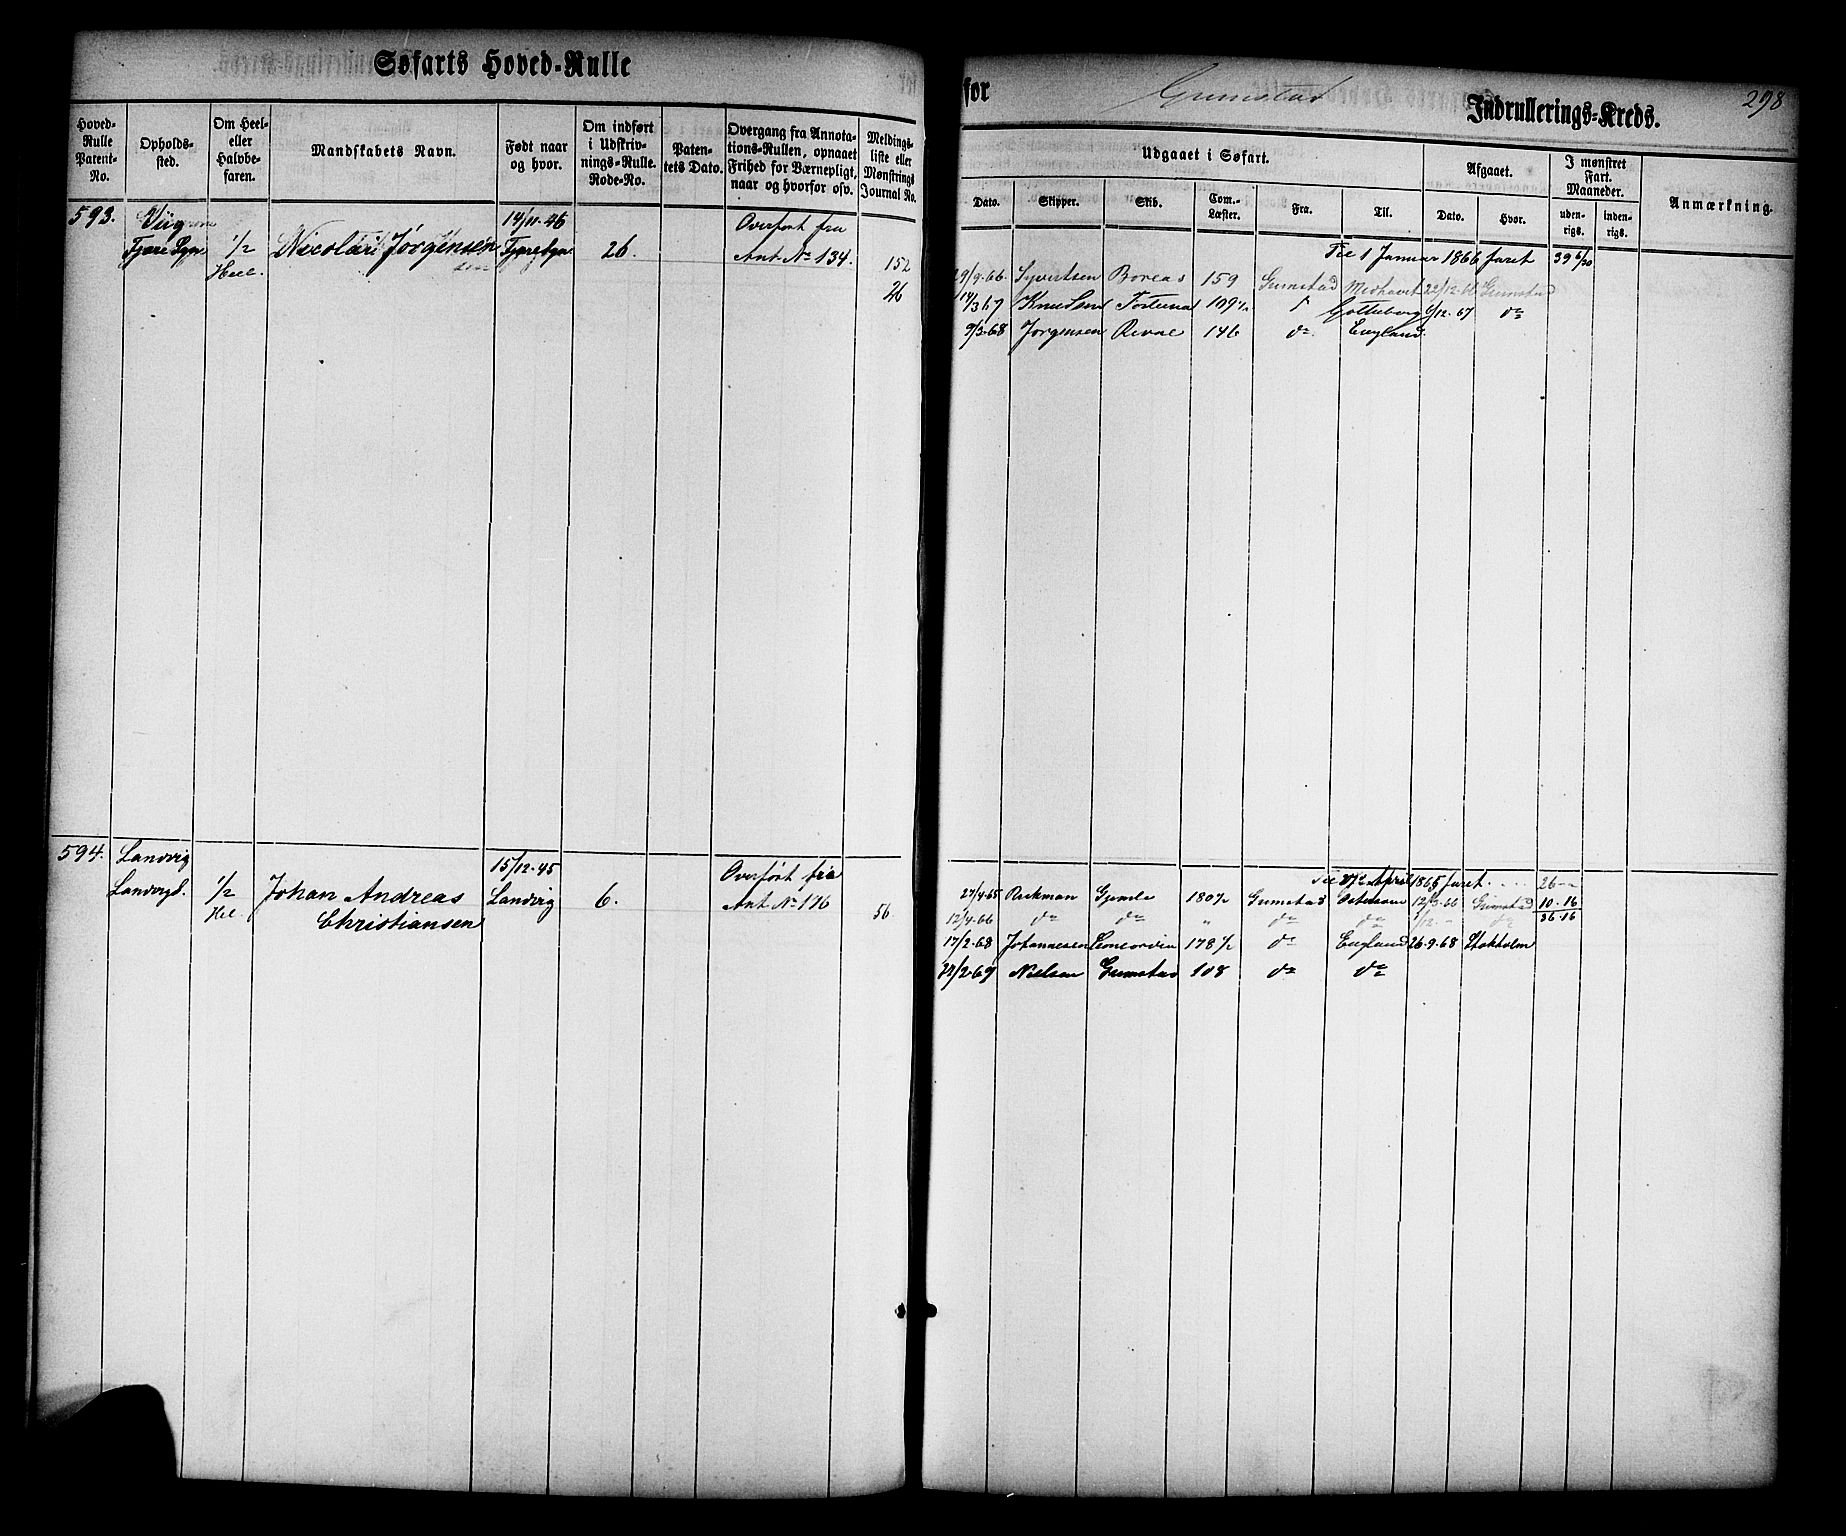 Søfarts Hoved-Rulle
for Grimstad Indrullerings-Kreds.
298
Hoved-Rulle Patent-No.
Opholds-sted.
Om Heel- eller Halvbe-faren.
Mandskabets Navn.
Født naar og hvor.
Om indført i Udskriv-nings-Rulle. Rode-No.
Paten-tets Dato.
Overgang fra Annota-tions-Rullen, opnaaet Frihed for Værnepligt, naar og hvorfor osv.
Meldings-liste eller Mønstrings Journal No.
Udgaaet i Søfart.
Dato.
Skipper.
Skib.
Com.-Læster.
Fra.
Til.
Afgaaet.
Dato.
Hvor.
I mønstret Fart. Maaneder.
uden-rigs.
inden-rigs.
Anmærkning.
593.
1/2
Heel.
Nicolai Jørgensen
14/11-46
26.
Overført fra
Ant. No 134.
152
26
Til 1 Januar 1866 faret 39 6/30
29/9-66 Syvertsen Boreas 159 Grimstad Midhavet 22/12-66 Grimstad
14/3 67 Knudsen Fortuna 109 Gottenborg 6/12-67 do
9/3-68 Jørgensen 146 do England
594.
Landvig
Landvigs.
1/2
Hel.
Johan Andreas
Christiansen
15/12-45
Landvig
6.
Overført fra
Ant No 116
56
Til 27de April 1865 faret 26 -
27/4-65 Gjimle 180 Grimstad 12/3-66 Grimstad 10-16
12/4-66 do do " do do 1/12 - do 36-16
17/2-68 Johannesen Concordia 178 1/2 do England 26-9-68 Stokholm
2-69 Nielsen Grimstad 108 do do